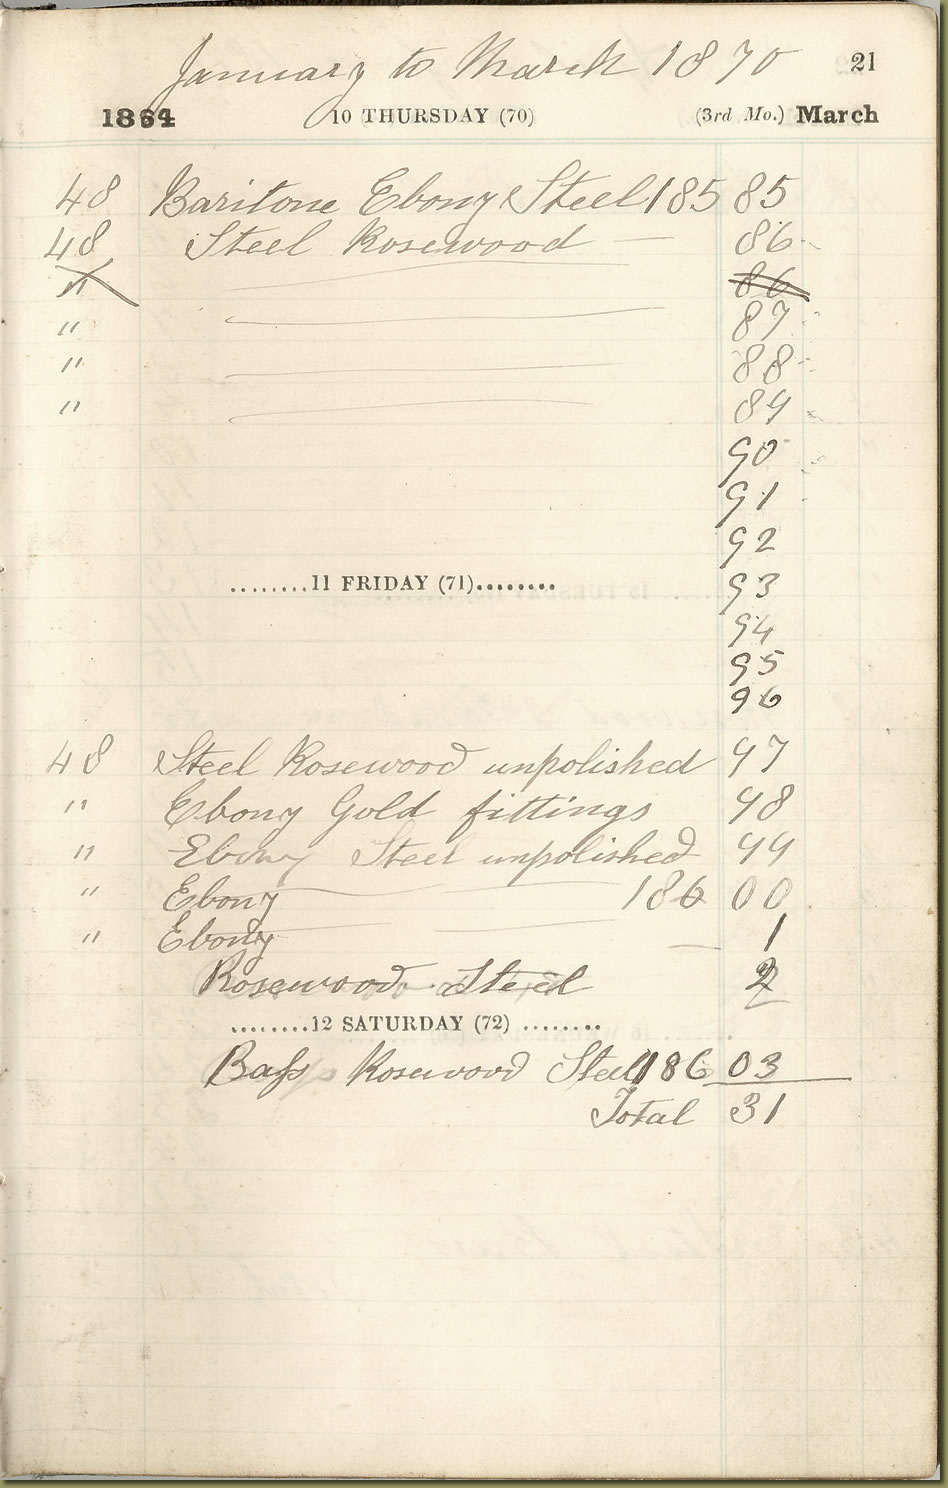 January to March 1870
21
1864 10 THURSDAY (70) (3rd Mo.) March
48 Baritone Ebony Steel 185 85
48 Steel Rosewood — 86
" 86
" 87
" 88
" 89
90
91
92
........11 FRIDAY (71)........ 93
94
95
96
48 Steel Rosewood unpolished 97
" Ebony Gold fittings 98
" Ebony Steel unpolished 99
" Ebony 186 00
" Ebony — 1
Rosewood Steel 2
........12 SATURDAY (72) ........
Bass Rosewood Steel 186 03
Total 31